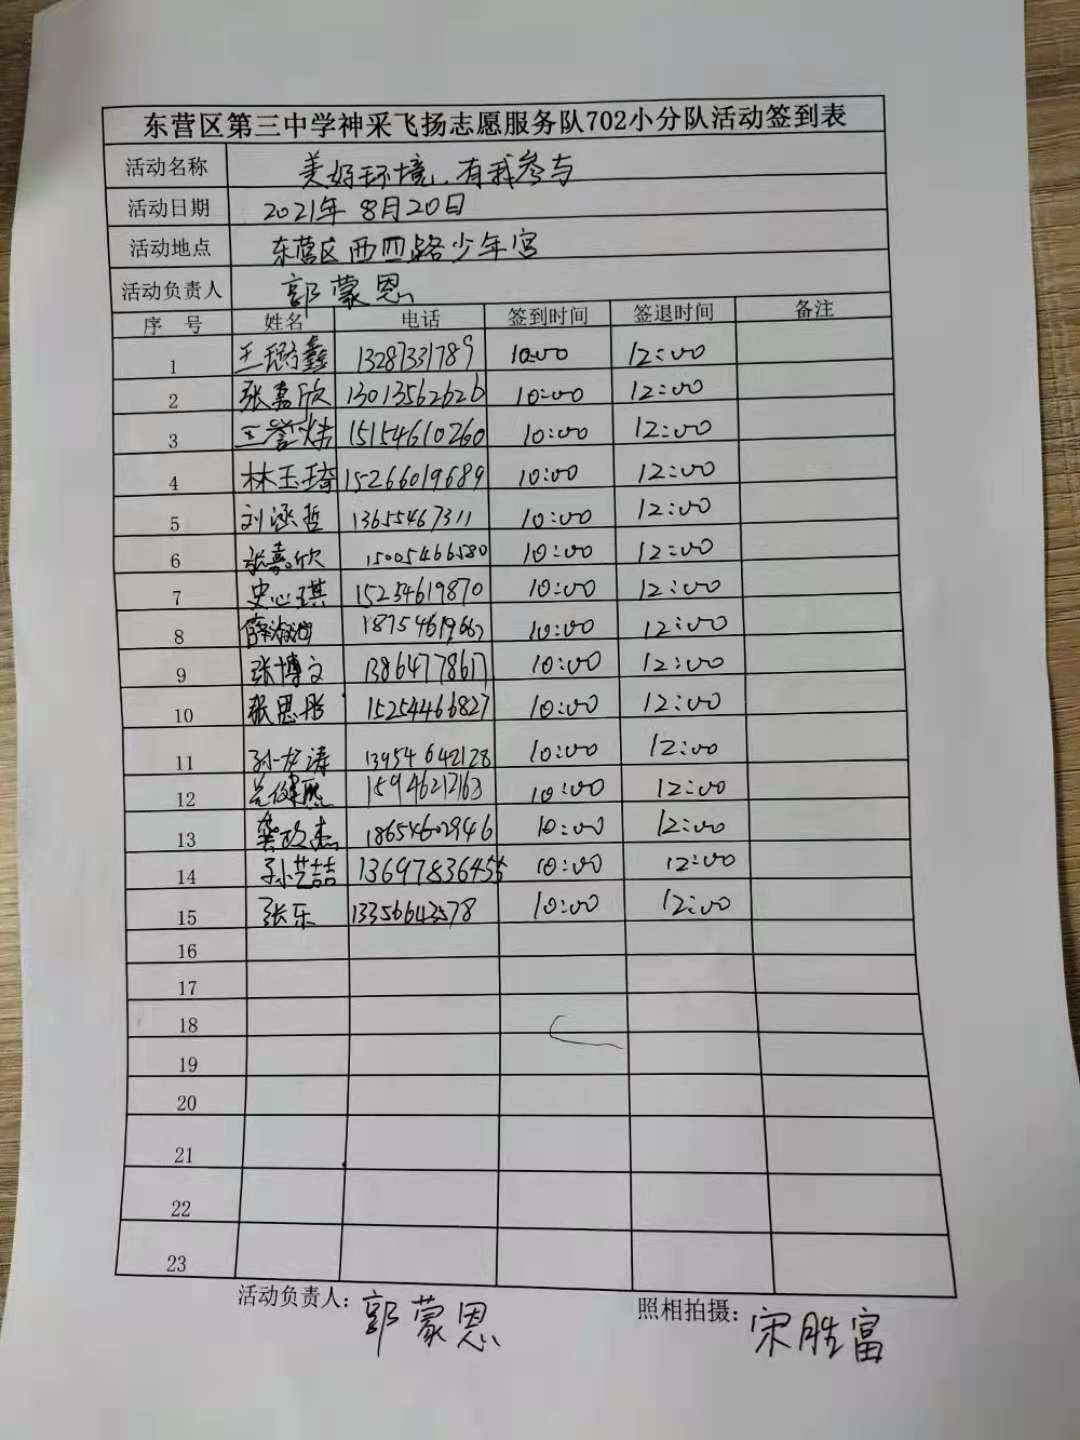 东营区第三中学神采飞扬志愿服务队702小分队活动签到表
活动名称 美好环境、有我参与
活动日期 2021年8月20日
活动地点 东营区西四路少年宫
活动负责人 郭蒙恩
序 号 姓名 电话 签到时间 签退时间 备注
1 王璐鑫 13287331789 10:00 12:00
2 张嘉欣 13013562626 10:00 12:00
3 王誉 15154610260 10:00 12:00
4 林玉琦 15266019689 10:00 12:00
5 刘涵哲 13655467311 10:00 12:00
6 张嘉欣 15005466580 10:00 12:00
7 史心琪 15254619870 10:00 12:00
8 10:00 12:00
9 张博文 13864778617 10:00 12:00
10 张思彤 15254466827 10:00 12:00
11 涛 13954642128 10:00 12:00
12 15946212163 10:00 12:00
13 龚政杰 18654602946 10:00 12:00
14 孙艺喆 13697836455 10:00 12:00
15 张乐 13356643578 10:00 12:00
16
17
18
19
20
21
22
23
活动负责人: 郭蒙恩 照相拍摄: 宋胜富